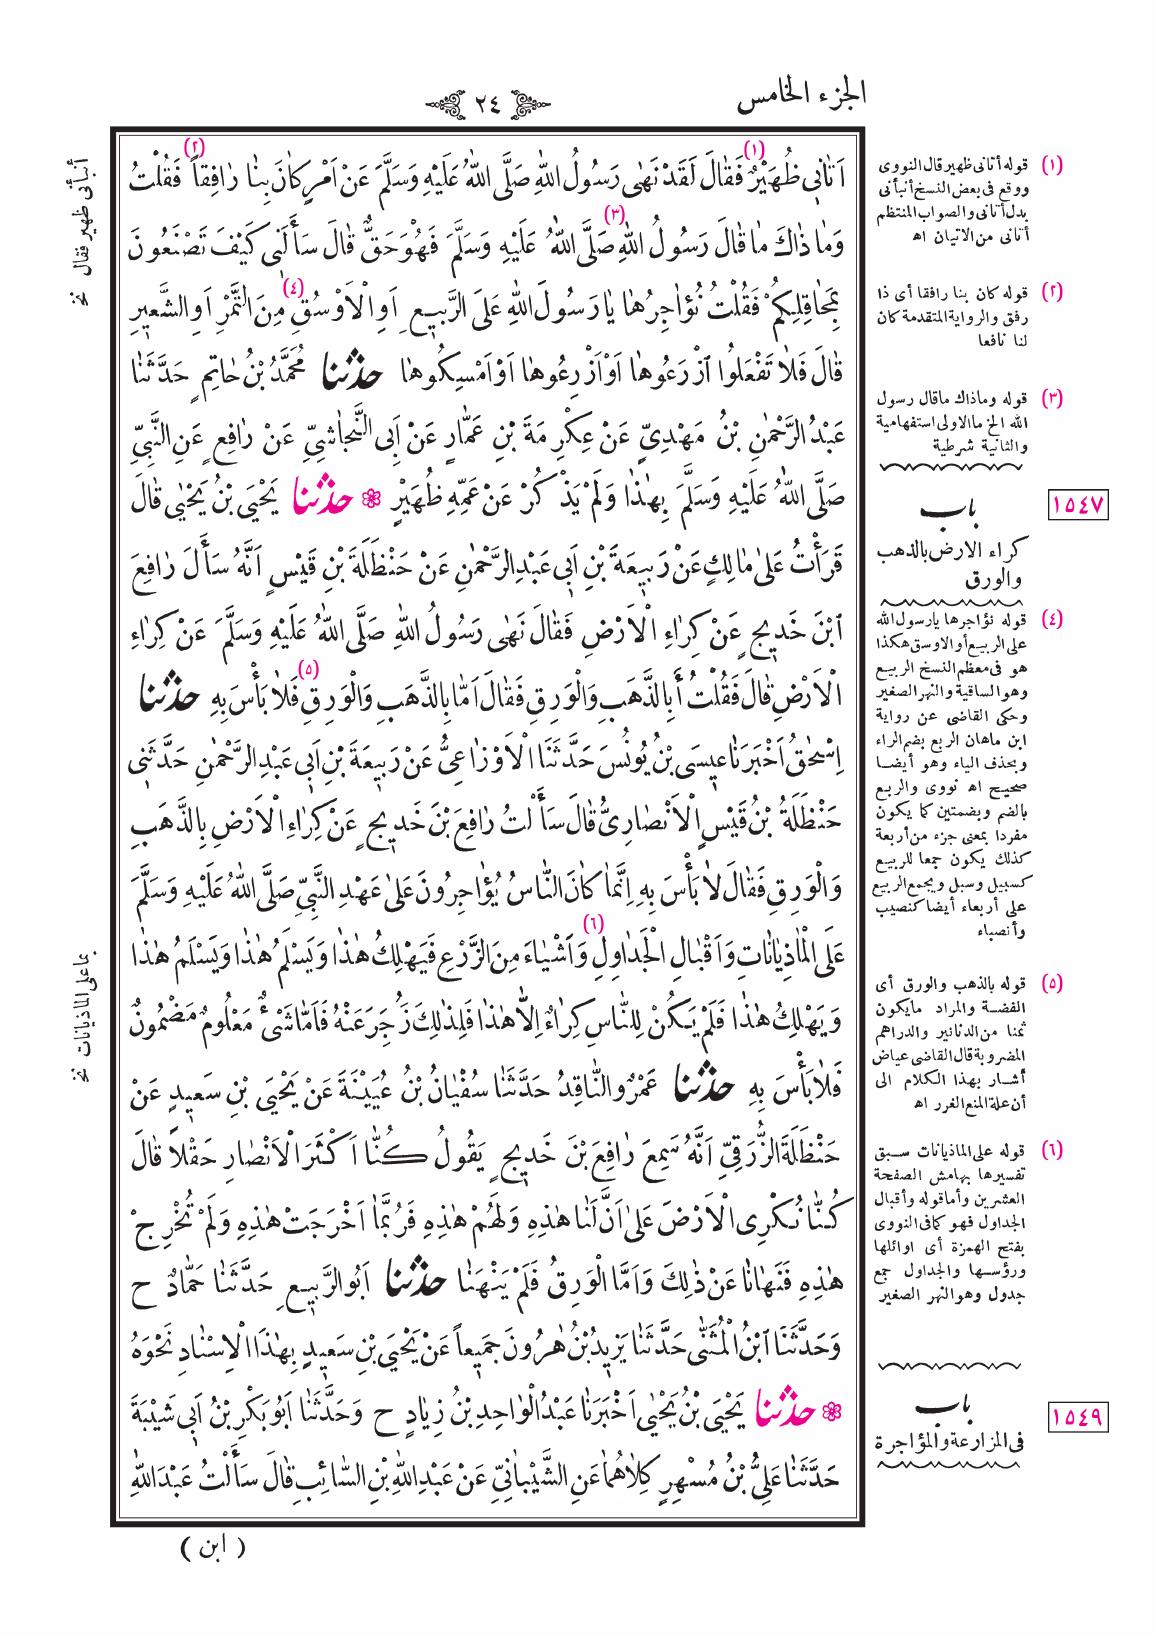 الجزء الخامس
٢٤
اَتَانِي ظُهَيْرٌ (١) فَقَالَ لَقَدْ نَهٰى رَسُولُ اللهِ صَلَّى اللهُ عَلَيْهِ وَسَلَّمَ عَنْ اَمْرٍ كَانَ بِنَا رَافِقاً (٢) فَقُلْتُ
وَمَا ذَاكَ مَا قَالَ رَسُولُ اللهِ (٣) صَلَّى اللهُ عَلَيْهِ وَسَلَّمَ فَهُوَ حَقٌّ قَالَ سَأَلَنِى كَيْفَ تَصْنَعُونَ
بِمَحَاقِلِكُمْ فَقُلْتُ نُؤَاجِرُهَا يَا رَسُولَ اللهِ عَلَى الرَّبِيعِ اَوِ الْاَوْسُقِ (٤) مِنَ التَّمْرِ اَوِ الشَّعِيرِ
قَالَ فَلَا تَفْعَلُوا اَزْرَعُوهَا اَوْ اَزْرِعُوهَا اَوْ اَمْسِكُوهَا حدثنا مُحَمَّدُ بْنُ حَاتِمٍ حَدَّثَنَا
عَبْدُ الرَّحْمٰنِ بْنُ مَهْدِيٍّ عَنْ عِكْرِمَةَ بْنِ عَمَّارٍ عَنْ اَبِى النَّجَاشِيِّ عَنْ رَافِعٍ عَنِ النَّبِيِّ
صَلَّى اللهُ عَلَيْهِ وَسَلَّمَ بِهٰذَا وَلَمْ يَذْكُرْ عَنْ عَمِّهِ ظُهَيْرٍ ❁ حدثنا يَحْيَى بْنُ يَحْيٰى قَالَ
قَرَأْتُ عَلىٰ مَالِكٍ عَنْ رَبِيعَةَ بْنِ اَبِي عَبْدِ الرَّحْمٰنِ عَنْ حَنْظَلَةَ بْنِ قَيْسٍ اَنَّهُ سَأَلَ رَافِعَ
ابْنَ خَدِيجٍ عَنْ كِرَاءِ الْاَرْضِ فَقَالَ نَهٰى رَسُولُ اللهِ صَلَّى اللهُ عَلَيْهِ وَسَلَّمَ عَنْ كِرَاءِ
الْاَرْضِ قَالَ فَقُلْتُ أَبِالذَّهَبِ وَالْوَرِقِ فَقَالَ اَمَّا بِالذَّهَبِ وَالْوَرِقِ (٥) فَلَا بَأْسَ بِهِ حدثنا
اِسْحٰقُ اَخْبَرَنَا عِيسَى بْنُ يُونُسَ حَدَّثَنَا الْاَوْزَاعِيُّ عَنْ رَبِيعَةَ بْنِ اَبِي عَبْدِ الرَّحْمٰنِ حَدَّثَنِى
حَنْظَلَةُ بْنُ قَيْسٍ الْاَنْصَارِيُّ قَالَ سَأَلْتُ رَافِعَ بْنَ خَدِيجٍ عَنْ كِرَاءِ الْاَرْضِ بِالذَّهَبِ
وَالْوَرِقِ فَقَالَ لَا بَأْسَ بِهِ اِنَّمَا كَانَ النَّاسُ يُؤَاجِرُونَ عَلىٰ عَهْدِ النَّبِيِّ صَلَّى اللهُ عَلَيْهِ وَسَلَّمَ
عَلَى الْمَاذِيَانَاتِ وَاَقْبَالِ الْجَدَاوِلِ (٦) وَاَشْيَاءَ مِنَ الزَّرْعِ فَيَهْلِكُ هٰذَا وَيَسْلَمُ هٰذَا وَيَسْلَمُ هٰذَا
وَيَهْلِكُ هٰذَا فَلَمْ يَكُنْ لِلنَّاسِ كِرَاءٌ اِلَّا هٰذَا فَلِذٰلِكَ زُجِرَ عَنْهُ فَاَمَّا شَىْءٌ مَعْلُومٌ مَضْمُونٌ
فَلَا بَأْسَ بِهِ حدثنا عَمْرٌو النَّاقِدُ حَدَّثَنَا سُفْيَانُ بْنُ عُيَيْنَةَ عَنْ يَحْيَى بْنِ سَعِيدٍ عَنْ
حَنْظَلَةَ الزُّرَقِيِّ اَنَّهُ سَمِعَ رَافِعَ بْنَ خَدِيجٍ يَقُولُ كُنَّا اَكْثَرَ الْاَنْصَارِ حَقْلاً قَالَ
كُنَّا نُكْرِى الْاَرْضَ عَلىٰ اَنَّ لَنَا هٰذِهِ وَلَهُمْ هٰذِهِ فَرُبَّمَا اَخْرَجَتْ هٰذِهِ وَلَمْ تُخْرِجْ
هٰذِهِ فَنَهَانَا عَنْ ذٰلِكَ وَاَمَّا الْوَرِقُ فَلَمْ يَنْهَنَا حدثنا اَبُو الرَّبِيعِ حَدَّثَنَا حَمَّادٌ ح
وَحَدَّثَنَا ابْنُ الْمُثَنَّى حَدَّثَنَا يَزِيدُ بْنُ هٰرُونَ جَمِيعاً عَنْ يَحْيَى بْنِ سَعِيدٍ بِهٰذَا الْاِسْنَادِ نَحْوَهُ
❁ حدثنا يَحْيَى بْنُ يَحْيٰى اَخْبَرَنَا عَبْدُ الْوَاحِدِ بْنُ زِيَادٍ ح وَحَدَّثَنَا اَبُو بَكْرِ بْنُ اَبِي شَيْبَةَ
حَدَّثَنَا عَلِيُّ بْنُ مُسْهِرٍ كِلَاهُمَا عَنِ الشَّيْبَانِيِّ عَنْ عَبْدِ اللهِ بْنِ السَّائِبِ قَالَ سَأَلْتُ عَبْدَ اللهِ
( ابن )
(١) قوله أتانى ظهير قال النووى
ووقع فى بعض النسخ أنبأنى
بدل أتانى والصواب المنتظم
أتانى من الاتيان اه
(٢) قوله كان بنا رافقا أى ذا
رفق والرواية المتقدمة كان
لنا نافعا
(٣) قوله وماذاك ماقال رسول
الله الخ ما الاولى استفهامية
والثانية شرطية
١٥٤٧
باب
كراء الارض بالذهب
والورق
(٤) قوله نؤاجرها يارسول الله
على الربيع أو الاوسق هكذا
هو فى معظم النسخ الربيع
وهو الساقية والنهر الصغير
وحكى القاضى عن رواية
ابن ماهان الربع بضم الراء
وبحذف الياء وهو أيضا
صحيح اه نووى والربع
بالضم وبضمتين كما يكون
مفردا بمعنى جزء من أربعة
كذلك يكون جمعا للربيع
كسبيل وسبل ويجمع الربيع
على أربعاء أيضا كنصيب
وأنصباء
(٥) قوله بالذهب والورق أى
الفضة والمراد مايكون
ثمنا من الدنانير والدراهم
المضروبة قال القاضى عياض
أشار بهذا الكلام الى
أن علة المنع الغرر اه
(٦) قوله على الماذيانات سبق
تفسيرها بهامش الصفحة
العشرين وأما قوله وأقبال
الجداول فهو كما فى النووى
بفتح الهمزة أى اوائلها
ورؤسها والجداول جمع
جدول وهو النهر الصغير
باب
١٥٤٩
فى المزارعة والمؤاجرة
أنبأنى ظهير فقال نخ
بما على الماذيانات نخ